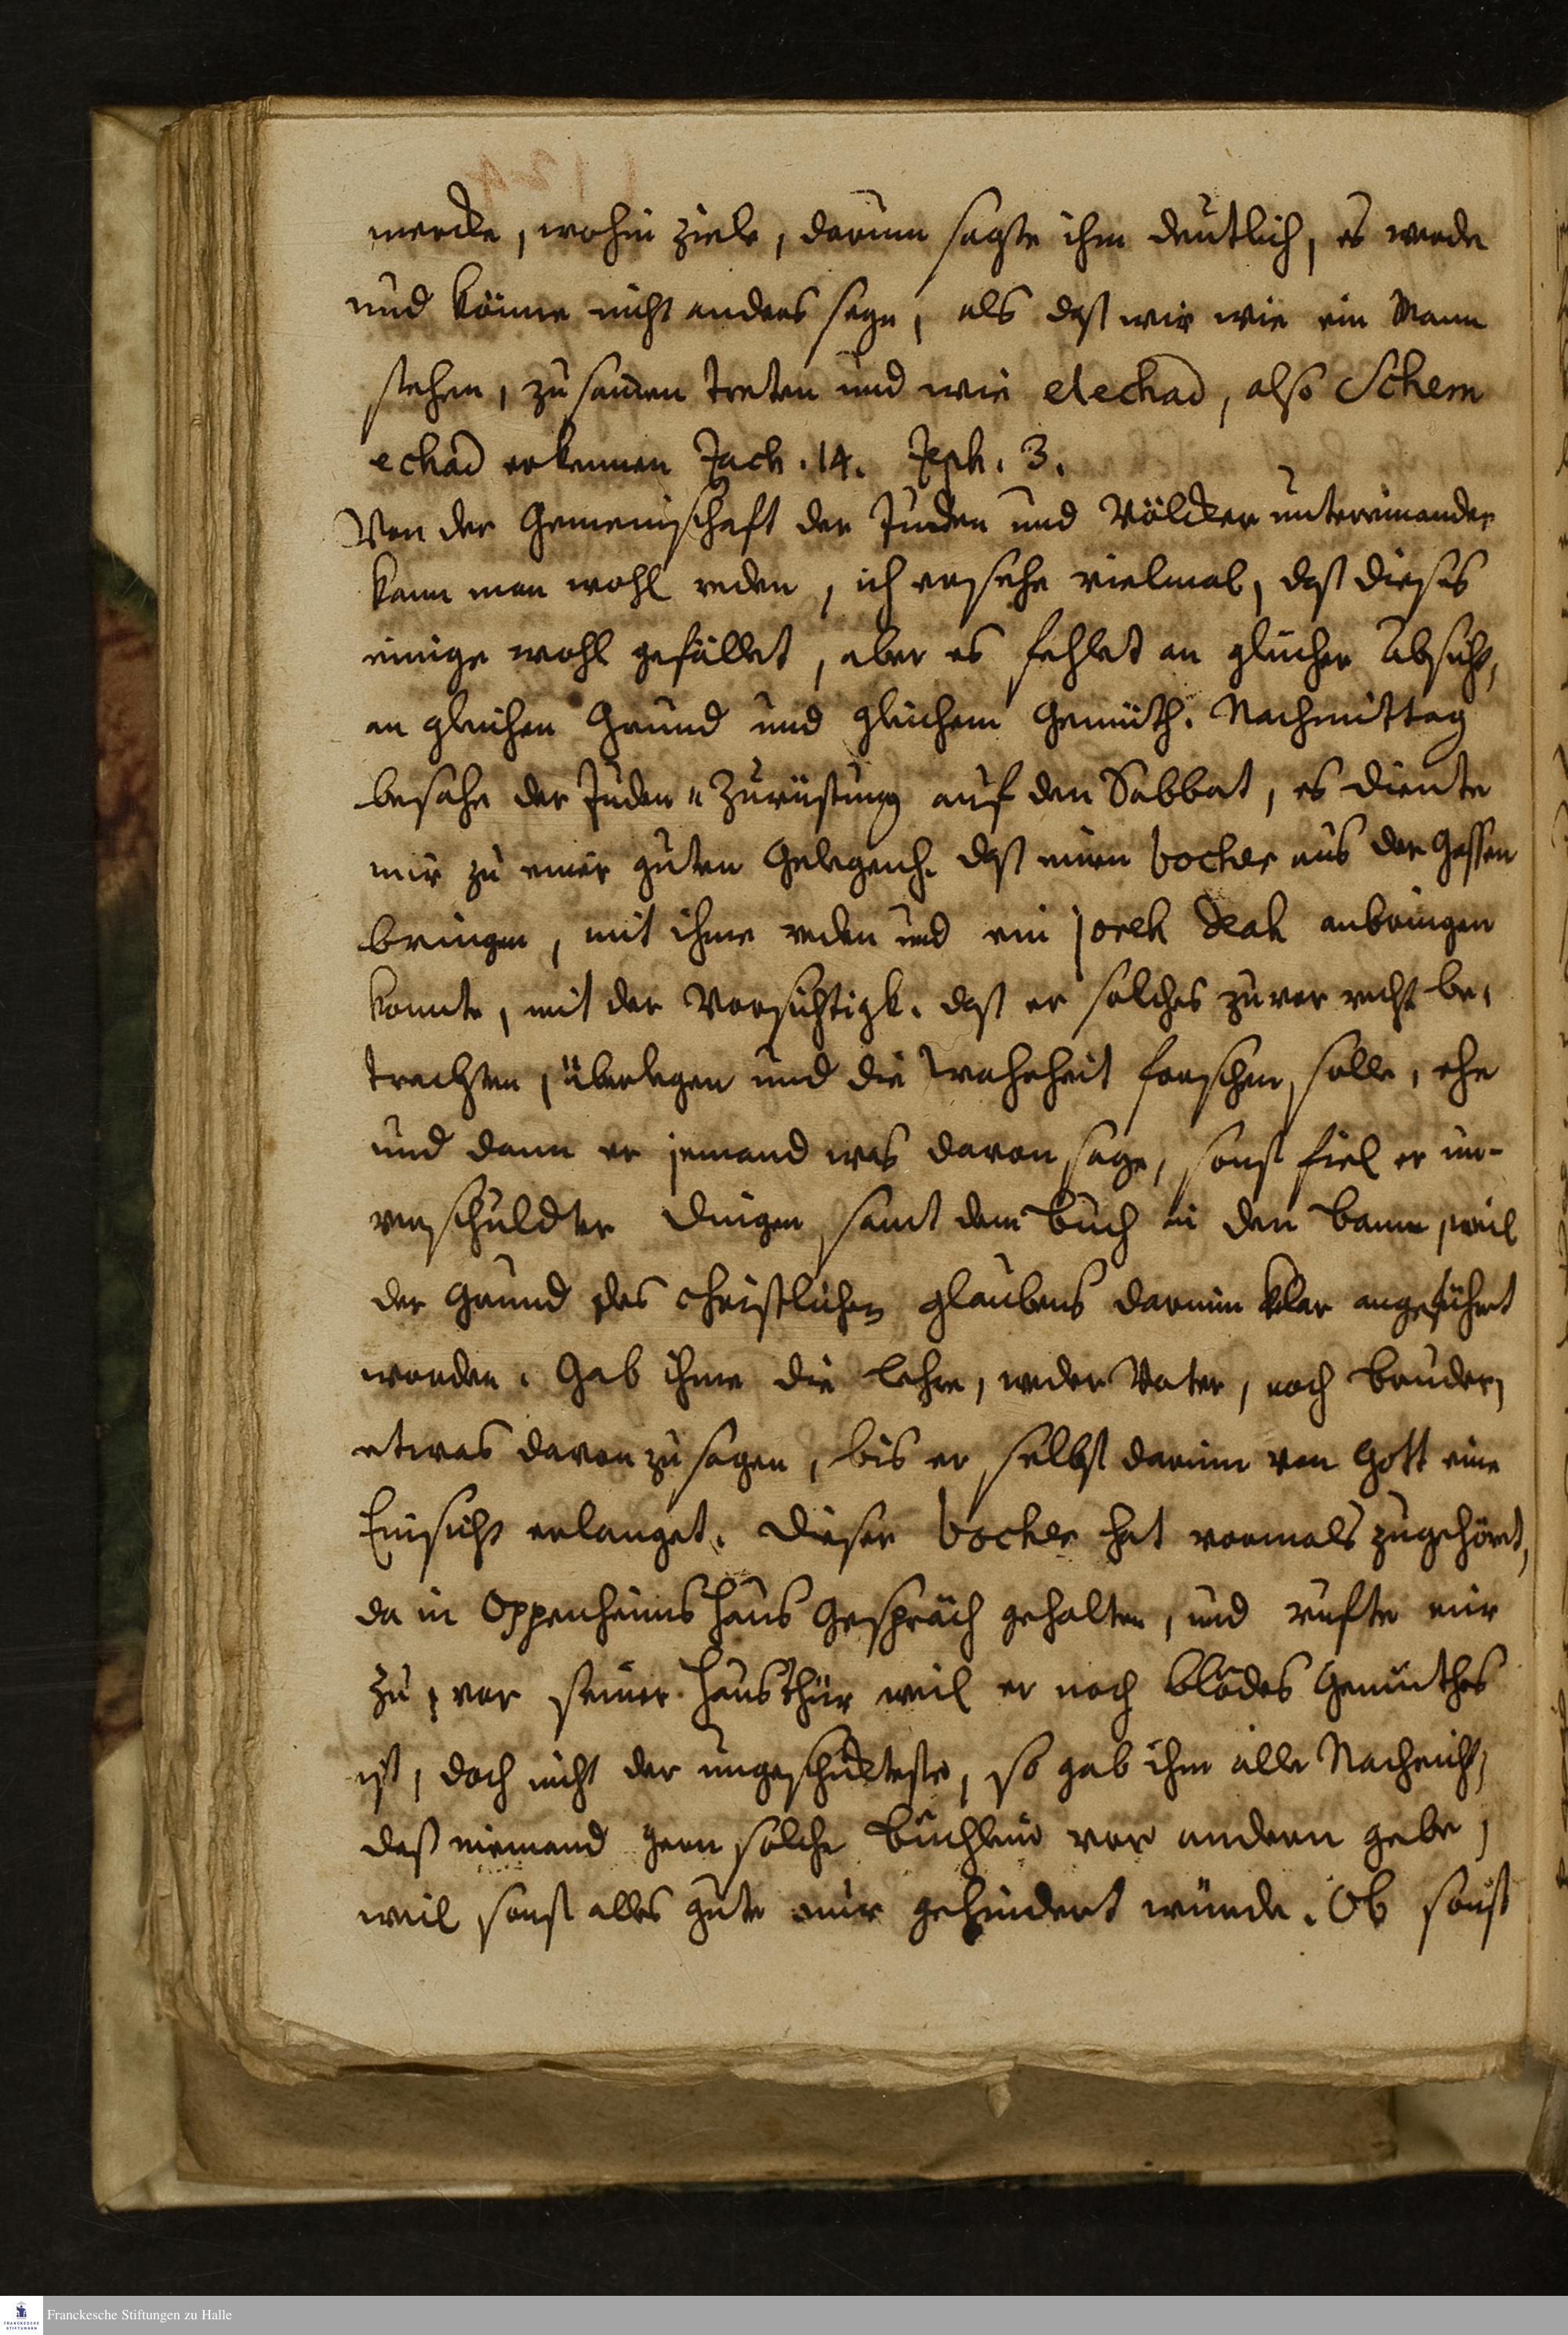 mercke, wohin ziele, darum sagte ihm deutlich, es werde
und könne nicht anders seyn, als daß wir wie ein Mann
stehen, zusamen treten und wie el echad, also Schem
echad erkennen Zach. 14. Zeph. 3.
Von der Gemeinschaft der Juden und Völcker untereinander
kann man wohl reden, ich ersehe vielmal, daß dieses
einige wohl gefället, aber es fehlet an glicher Absicht,
an gleichen Grund und glichem Gemüth. Nachmittag
besahe der Juden Zurüstung auf den Sabbat, es diente
mir zu einer guten Gelegenh. daß einen bocher aus der Gassen
bringen, mit ihme reden und ein joreh deah anbringen
konnte, mit der Vorsichtigk. daß er solches zuvor recht be-
trachten, überlegen und die Wahrheit forschen solle, ehe
und dann er jemand was davon sage, sonst fiel er un-
verschuldter Dingen samt dem Buch in den Bann, weil
der Grund des christlichen glaubens darinn klar angeführt
worden. Gab ihme die Lehre, weder Vater, noch Bruder,
etwas davon zu sagen, bis er selbst darinn von Gott eine
Einsicht erlanget. Dieser bocher hat vormals zugehört,
da in Oppenheims Haus Gespräch gehalten, und rufte mir
zu, vor seiner Hausthür weil er noch blödes Gemüthes
ist, doch nicht der ungeschickteste, so gab ihm alle Nachricht,
daß niemand gern solche Büchlein vor andern gebe,
weil sonst alles gute nur gehindert würde. Ob sonst
Franckesche Stiftungen zu Halle